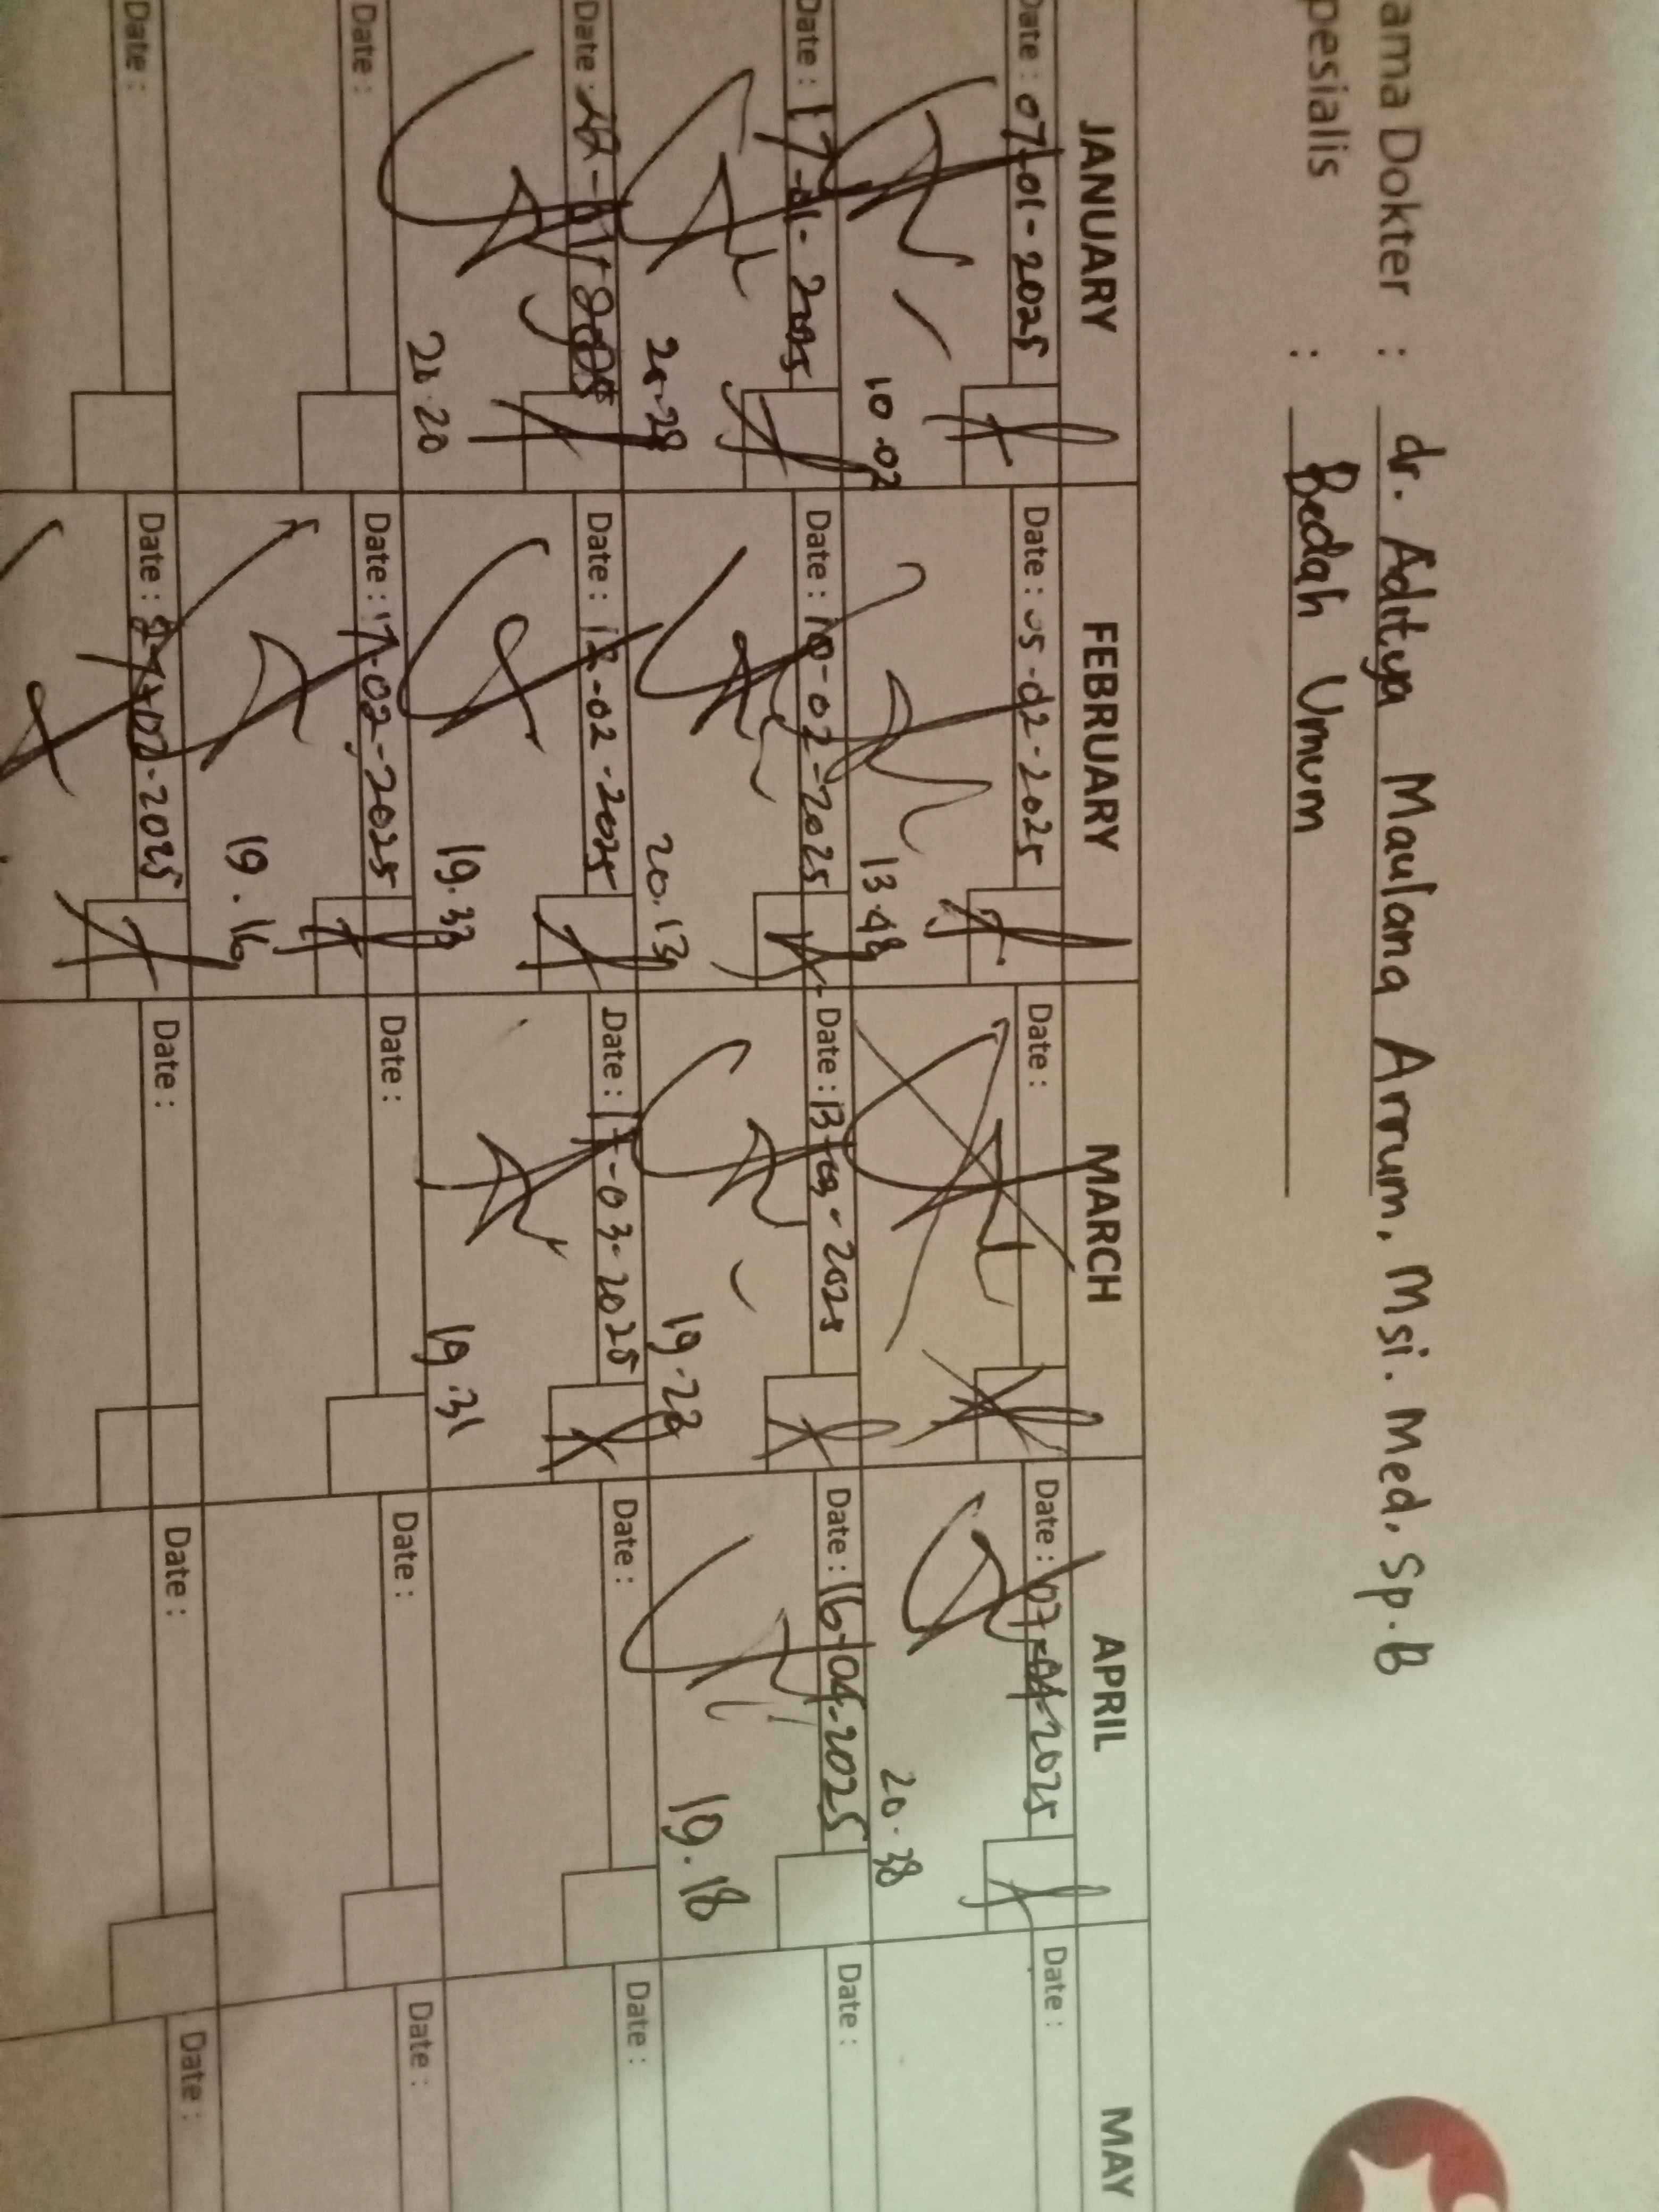 ama Dokter : dr. Aditya Maulana Arrum, Msi. Med, Sp.B
pesialis : Bedah Umum
JANUARY FEBRUARY MARCH APRIL MAY
Date : 07-01-2025 Date : 05-02-2025 Date : Date : 07-04-2025 Date :
10.02 13.48 20.38
Date : 17-01-2025 Date : 10-02-2025 Date : 13-03-2025 Date : 16-04-2025 Date :
20.13 19.23 19.18
Date : Date : 12-02-2025 Date : 17-03-2025 Date : Date :
20.20 19.33 19.31
Date : Date : 17-02-2025 Date : Date : Date :
19.16
Date : Date : Date : Date : Date :